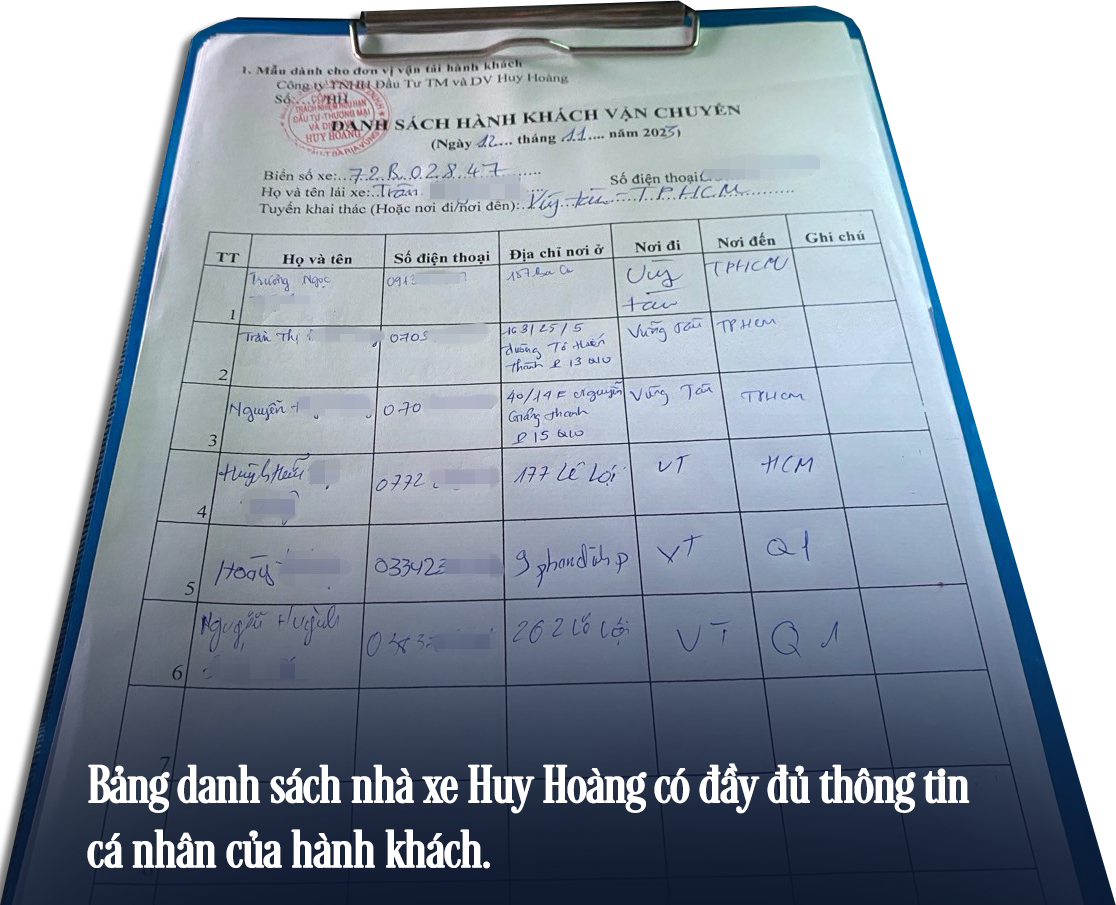 1. Mẫu dành cho đơn vị vận tải hành khách
Công ty TNHH Đầu Tư TM và DV Huy Hoàng
Số:..../HH
TRÁCH NHIỆM HỮU HẠN
ĐẦU TƯ-THƯƠNG MẠI
VÀ
HUY HOÀNG
DANH SÁCH HÀNH KHÁCH VẬN CHUYỂN
(Ngày 12... tháng .11.... năm 2025)
Biển số xe:..72B.028.47......
Số điện thoại:
Họ và tên lái xe: Trần
Tuyến khai thác (Hoặc nơi đi/nơi đến):.Vũng tàu - TPHCM
TT Họ và tên Số điện thoại Địa chỉ nơi ở Nơi đi Nơi đến Ghi chú
1 Trương Ngọc 091 Vũng tàu TPHCM
2 Trần Thị 0705 163/25/5 đường Tô Hiến thành P 13 Q10 Vũng Tàu TPHCM
3 Nguyễn 070 40/14F Nguyễn Giảng thanh P 15 Q10 Vũng Tàu TPHCM
4 Huỳnh 0772 177 Lê Lợi VT HCM
5 Hoàng 033423 9 phan đình p VT Q1
6 Nguyễn Huỳnh 262 Lê Lợi VT Q 1
7
Bảng danh sách nhà xe Huy Hoàng có đầy đủ thông tin
cá nhân của hành khách.